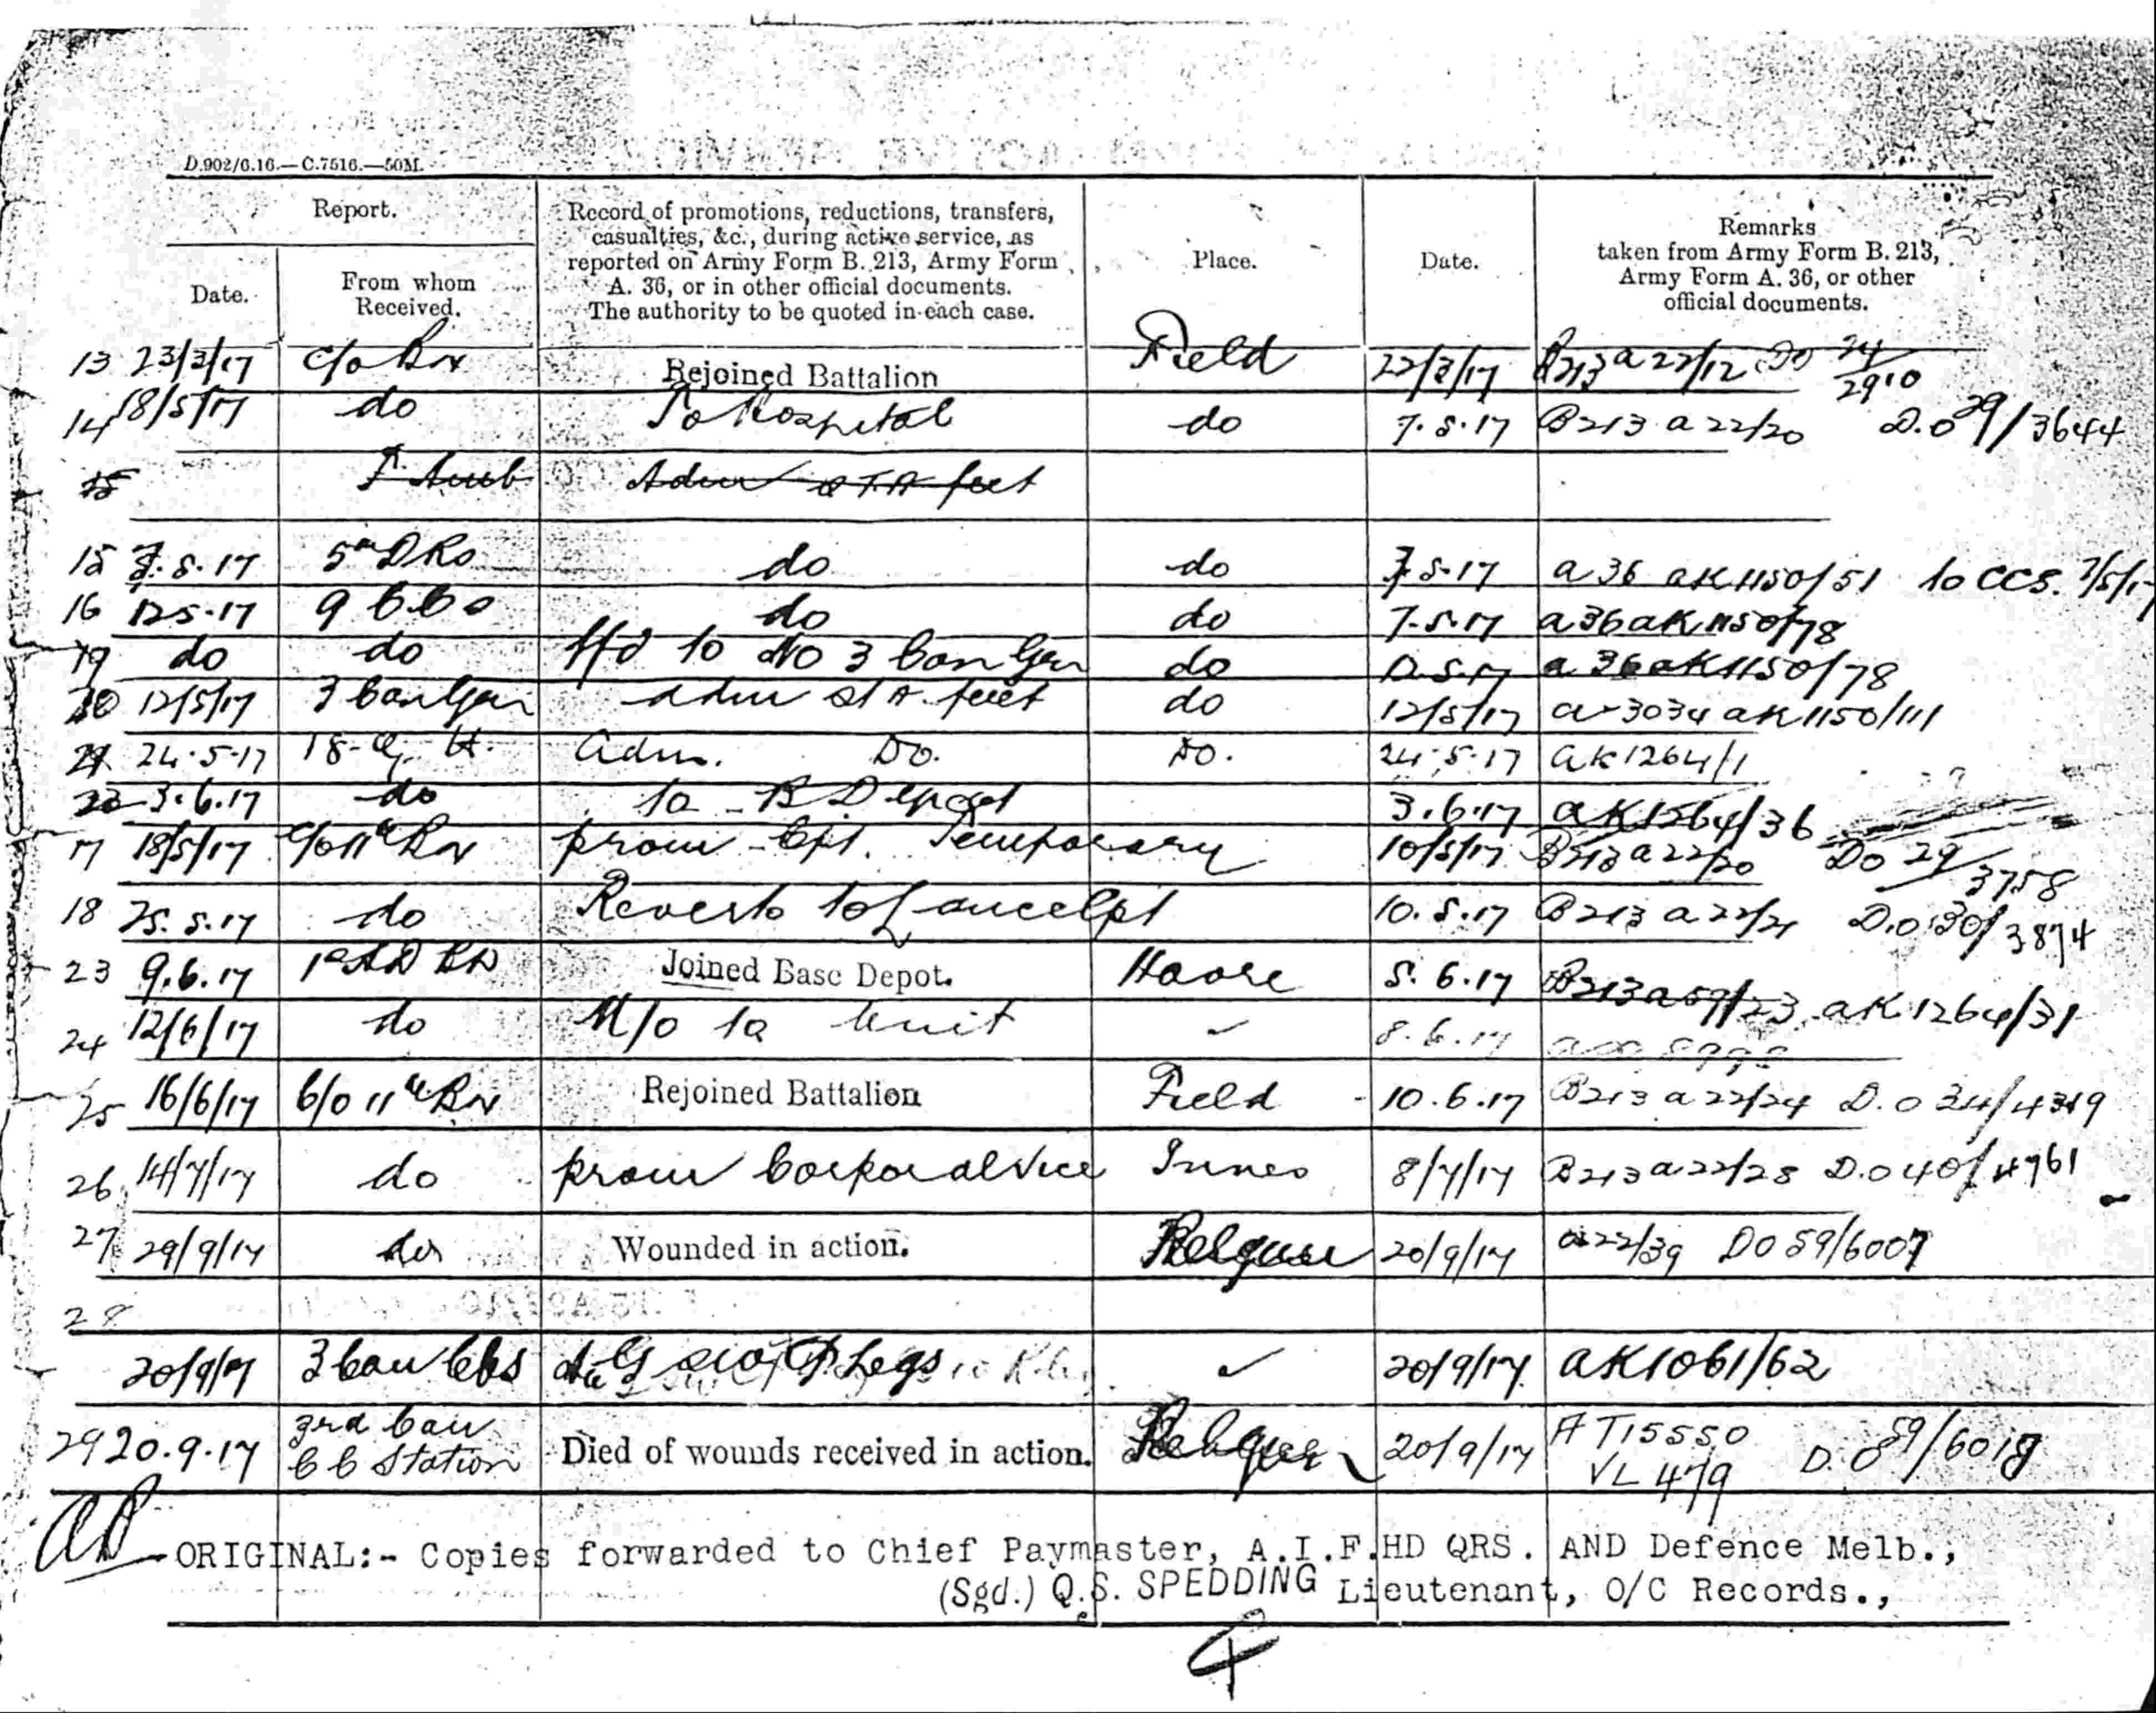 D.902/6.16.—C.7516.—50M.
Report.
Date.
From whom
Received.
Record of promotions, reductions, transfers,
casualties, &c., during active service, as
reported on Army Form B. 213, Army Form
A. 36, or in other official documents.
The authority to be quoted in each case.
Place.
Date.
Remarks
taken from Army Form B. 213,
Army Form A. 36, or other
official documents.
13 23/3/17 C/o Bn Rejoined Battalion Field 22/3/17 B213 a 22/12 DO 24/2910
14 18/5/17 do To Hospital do 7.5.17 B213 a 22/20 D.O 29/3644
15 F Amb Adm feet
15 7.5.17 5th DRS do do 7.5.17 a 36 aK 1150/51 to CCS. 7/5/17
16 12.5.17 9 CCS do do 7.5.17 a36 aK 1150/78
19 do do Tfd to No 3 Can Gen do 12.5.17 a 36 aK 1150/78
20 12/5/17 3 Can Gen adm feet do 12/5/17 a 3034 aK 1150/111
21 24.5.17 18 G. H. adm. Do. Do. 24.5.17 aK 1264/1
22 3.6.17 do to B Depot 3.6.17 aK 1264/36
17 18/5/17 C/O 11th Bn prom Cpl. Temporary 10/5/17 B213 a 22/20 DO 29/3758
18 25.5.17 do Reverts to Lancecpl 10.5.17 B213 a 22/21 D.O 30/3874
23 9.6.17 1st AD BD Joined Base Depot. Havre 5.6.17 B213 a 59/23 aK 1264/31
24 12/6/17 do M/o to Unit ✓ 8.6.17
25 16/6/17 C/O 11th Bn Rejoined Battalion Field 10.6.17 B213 a 22/24 D.O 34/4319
26 14/7/17 do prom Corporal Vice Innes 8/7/17 B213 a 22/28 D.O 40/4961
27 29/9/17 do Wounded in action. Belgium 20/9/17 a 22/39 DO 59/6007
28
20/9/17 3 Can CCS Legs ✓ 20/9/17 aK 1061/62
29 20.9.17 3rd Can
C C Station Died of wounds received in action. Belgium 20/9/17 AT15550
VL 479 D.O 59/6018
ORIGINAL:- Copies forwarded to Chief Paymaster, A.I.F.HD QRS. AND Defence Melb.,
(Sgd.) Q.S. SPEDDING Lieutenant, O/C Records.,